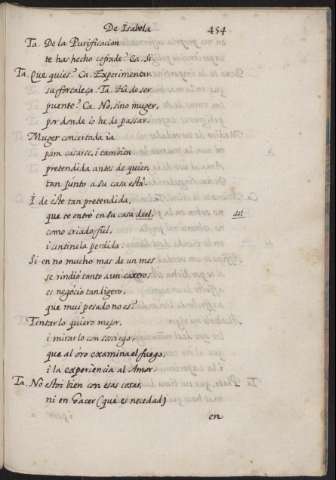 De Isabela 454
Ta. De la Purificacion
te has hecho cofrade? Ca. Si.
Ta. Que quies? Ca. Experimentar
su fortaleça. Ta. Ha de ser
puente? Ca. No, sino muger,
por donde io he de passar.
Muger concertada ia
para casarse, i tambien
pretendida antes de quien
tan junto a su casa està.
I de este tan pretendida,
que te entrò en su casa del,
como criado fiel,
i centinela perdida.
Si en no mucho mas de un mes
se rindiò tanto aun
es negocio tan ligero,
que mui pesado no es?
Tentarlo quiero mejor,
i mirarlo con sosiego,
que al òro examina el fuego,
i la experiencia al Amor.
Ta. No estoi bien con esas cosas,
ni en hacer (que es necedad)
en